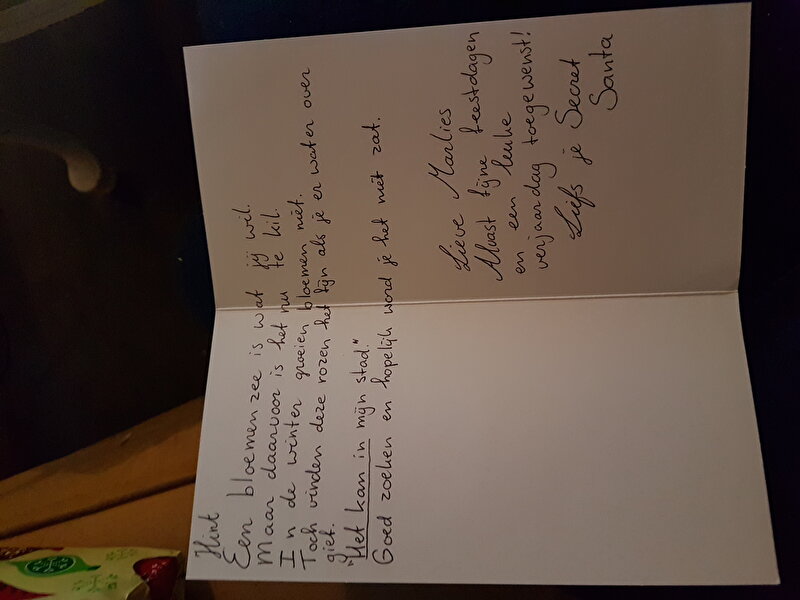 Hint
Een bloemenzee is wat jij wil.
Maar daarvoor is het nu te kil.
In de winter groeien bloemen niet.
Toch vinden deze rozen het fijn als je er water over
giet.
"Het kan in mijn stad."
Goed zoeken en hopelijk word je het niet zat.
Lieve Marlies
Alvast fijne feestdagen
en een leuke
verjaardag toegewenst!
Liefs je Secret
Santa